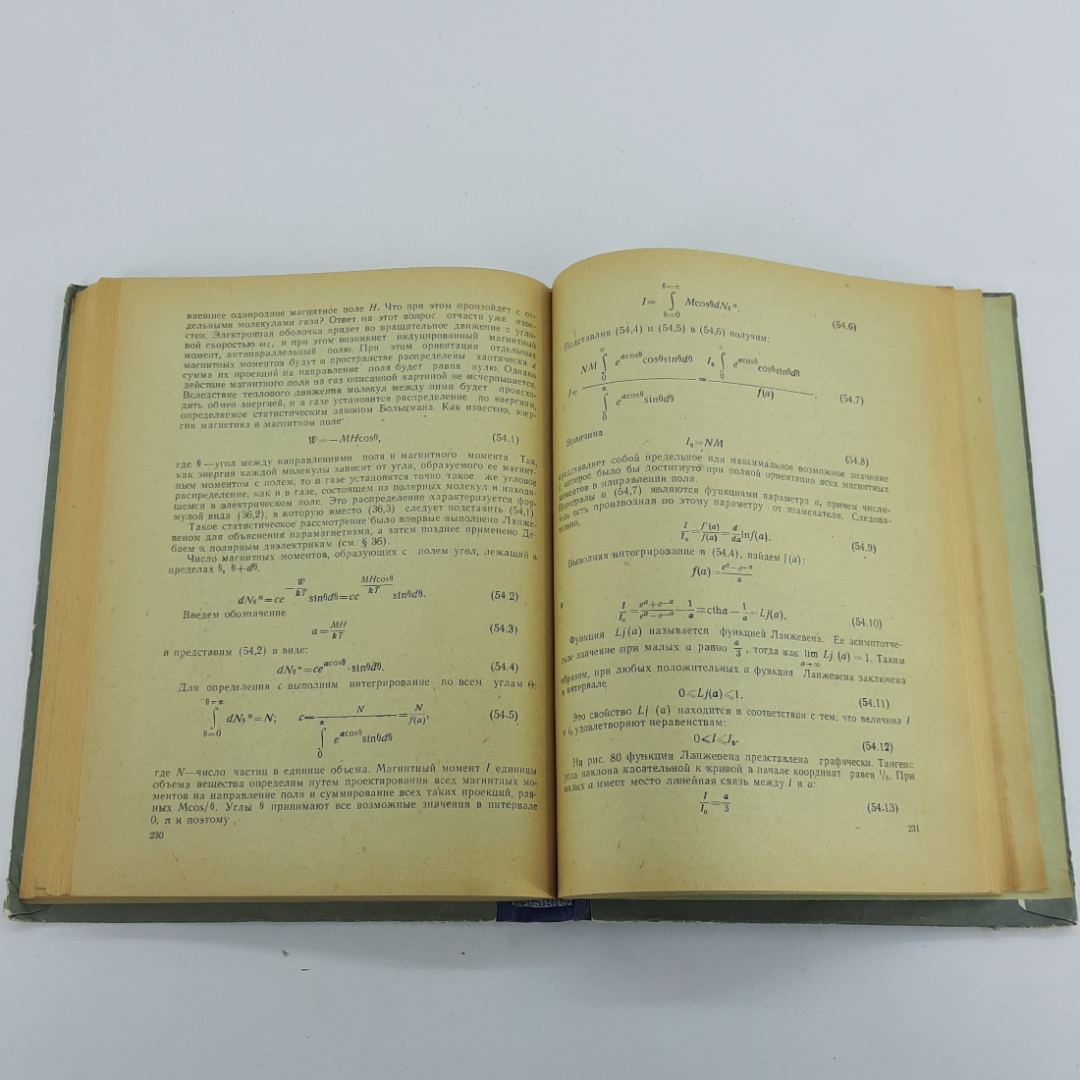 внешнее однородное магнитное поле H. Что при этом произойдет с от-
дельными молекулами газа? Ответ на этот вопрос отчасти уже изве-
стен. Электронная оболочка придет во вращательное движение с угло-
вой скоростью ω_L, и при этом возникнет индуцированный магнитный
момент, антипараллельный полю. При этом ориентации отдельных
магнитных моментов будут в пространстве распределены хаотически и
сумма их проекций на направление поля будет равна нулю. Однако
действие магнитного поля на газ описанной картиной не исчерпывается.
Вследствие теплового движения молекул между ними будет происхо-
дить обмен энергией, и в газе установится распределение по энергиям,
определяемое статистическим законом Больцмана. Как известно, энер-
гия магнетика в магнитном поле
W=−MHcosθ, (54.1)
где θ—угол между направлениями поля и магнитного момента. Так,
как энергия каждой молекулы зависит от угла, образуемого ее магнит-
ным моментом с полем, то в газе установится точно такое же угловое
распределение, как и в газе, состоящем из полярных молекул и находя-
щемся в электрическом поле. Это распределение характеризуется фор-
мулой вида (36,2), в которую вместо (36,3) следует подставить (54,1)
Такое статистическое рассмотрение было впервые выполнено Ланже-
веном для объяснения парамагнетизма, а затем позднее применено Де-
баем к полярным диэлектрикам (см. § 36).
Число магнитных моментов, образующих с полем угол, лежащий в
пределах θ, θ+dθ.
dN_θ^н=ce^{−W/kT} sinθdθ=ce^{MHcosθ/kT} sinθdθ. (54.2)
Введем обозначение
a=MH/kT (54.3)
и представим (54,2) в виде:
dN_θ^н=ce^{acosθ}·sinθdθ. (54.4)
Для определения c выполним интегрирование по всем углам Θ:
∫_{θ=0}^{θ=π} dN_θ^н=N; c=N/∫_0^π e^{acosθ}sinθdθ=N/f(a), (54.5)
где N—число частиц в единице объема. Магнитный момент I единицы
объема вещества определим путем проектирования всех магнитных мо-
ментов на направление поля и суммирование всех таких проекций, рав-
ных Mcos/θ. Углы θ принимают все возможные значения в интервале
0, π и поэтому
230
I=∫_{θ=0}^{θ=π} McosθdN_θ^н. (54.6)
Подставляя (54,4) и (54,5) в (54,6) получим:
I=NM∫_0^π e^{acosθ}cosθsinθdθ/∫_0^π e^{acosθ}sinθdθ=I_0∫_0^π e^{acosθ}cosθsinθdθ/f(a). (54.7)
Величина
I_0=NM (54.8)
представляет собой предельное или максимальное возможное значение
I, которое было бы достигнуто при полной ориентации всех магнитных
моментов в направлении поля.
Интегралы в (54,7) являются функциями параметра a, причем числи-
тель есть производная по этому параметру от знаменателя. Следова-
тельно,
I/I_0=f'(a)/f(a)=d/da lnf(a). (54.9)
Выполняя интегрирование в (54,4), найдем f(a):
f(a)=e^a−e^{−a}/a
и
I/I_0=e^a+e^{−a}/e^a−e^{−a}−1/a=ctha−1/a=Lj(a). (54.10)
Функция Lj(a) называется функцией Ланжевена. Ее асимптоте-
ское значение при малых a равно a/3, тогда как lim_{a→∞} Lj (a)=1. Таким
образом, при любых положительных a функция Ланжевена заключена
в интервале
0⩽Lj(a)⩽1. (54.11)
Это свойство Lj (a) находится в соответствии с тем, что величина I
и I_0 удовлетворяют неравенствам:
0⩽I⩽I_0. (54.12)
На рис. 80 функция Ланжевена представлена графически. Тангенс
угла наклона касательной к кривой в начале координат равен 1/3. При
малых a имеет место линейная связь между I и a:
I/I_0=a/3 (54.13)
231